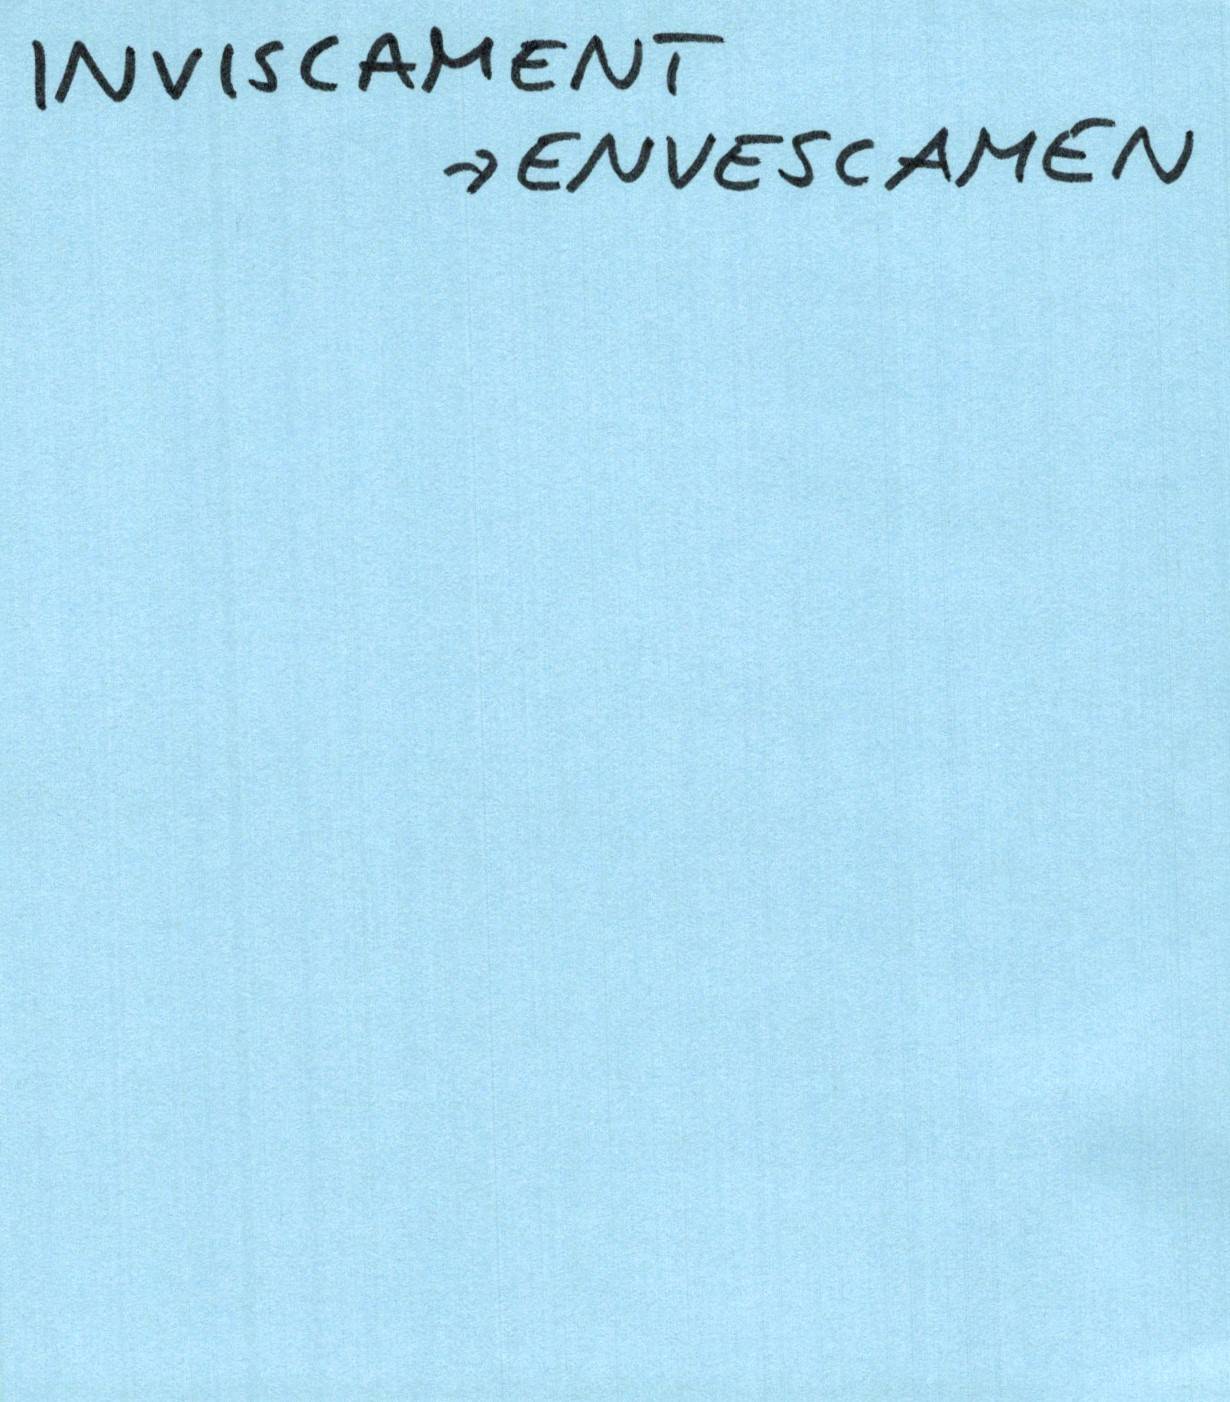 INVISCAMENT
→ ENVESCAMEN